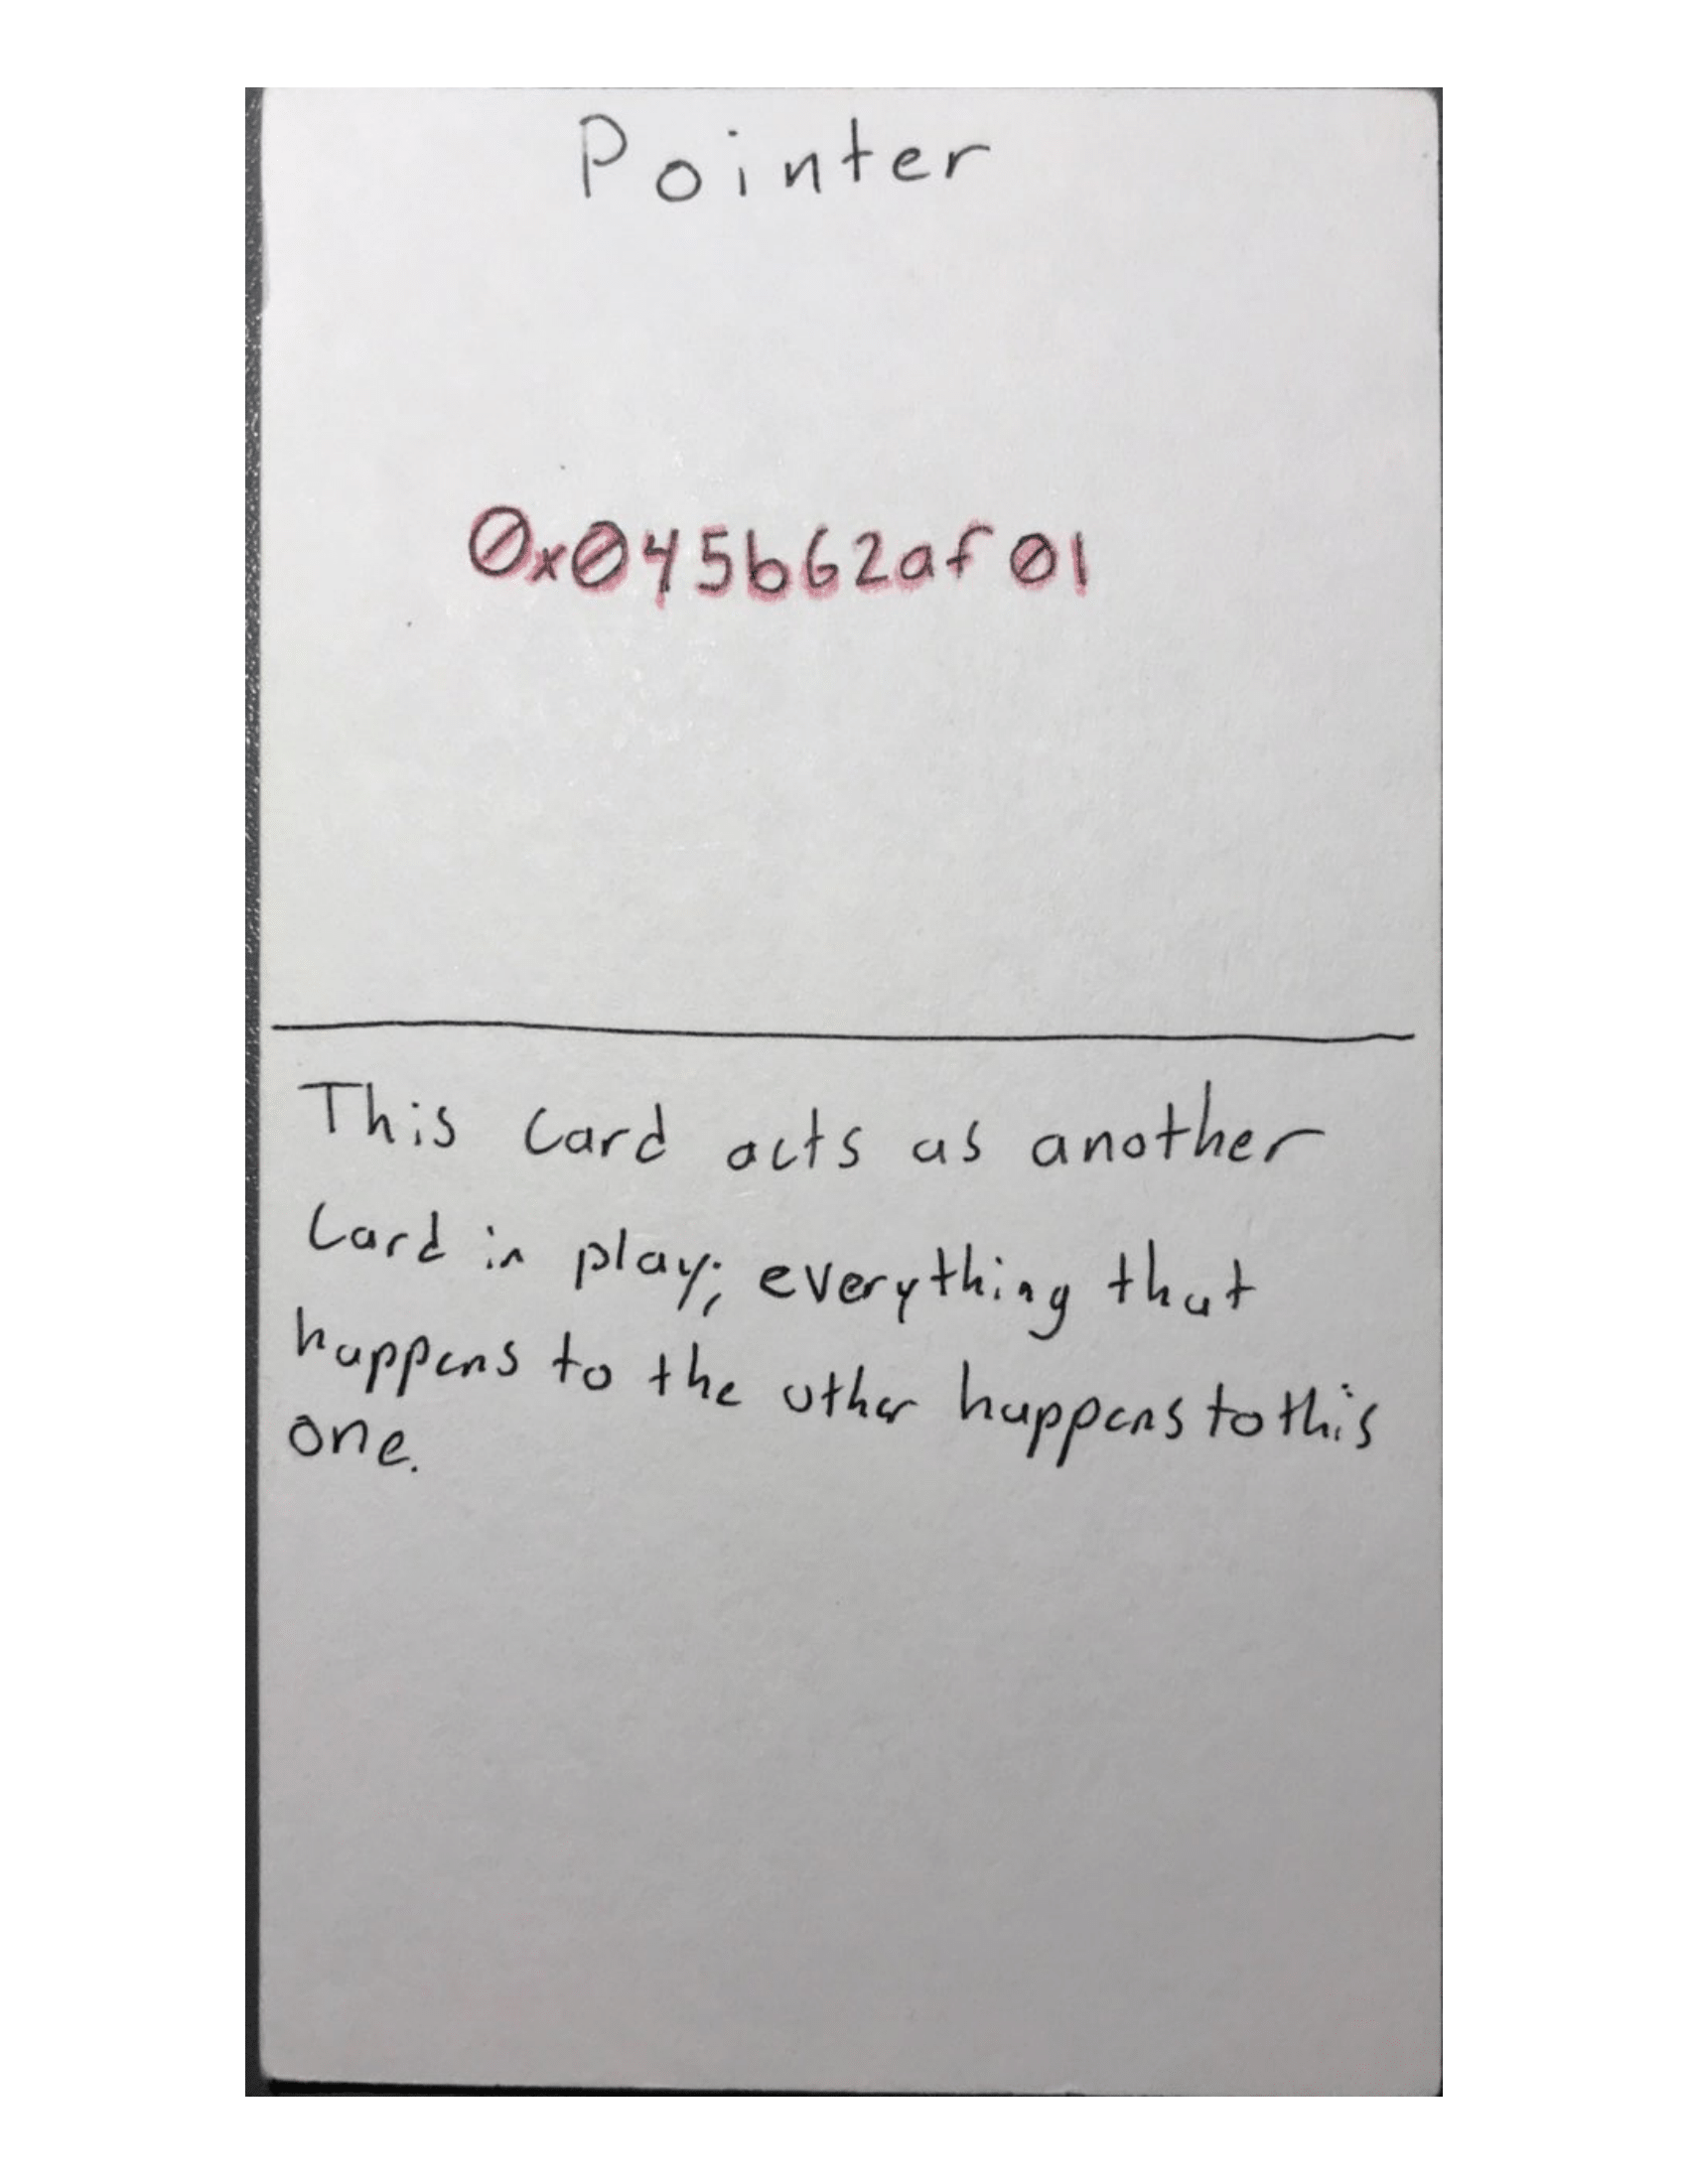 Pointer
0x045b62af01
This card acts as another
card in play; everything that
happens to the other happens to this
one.